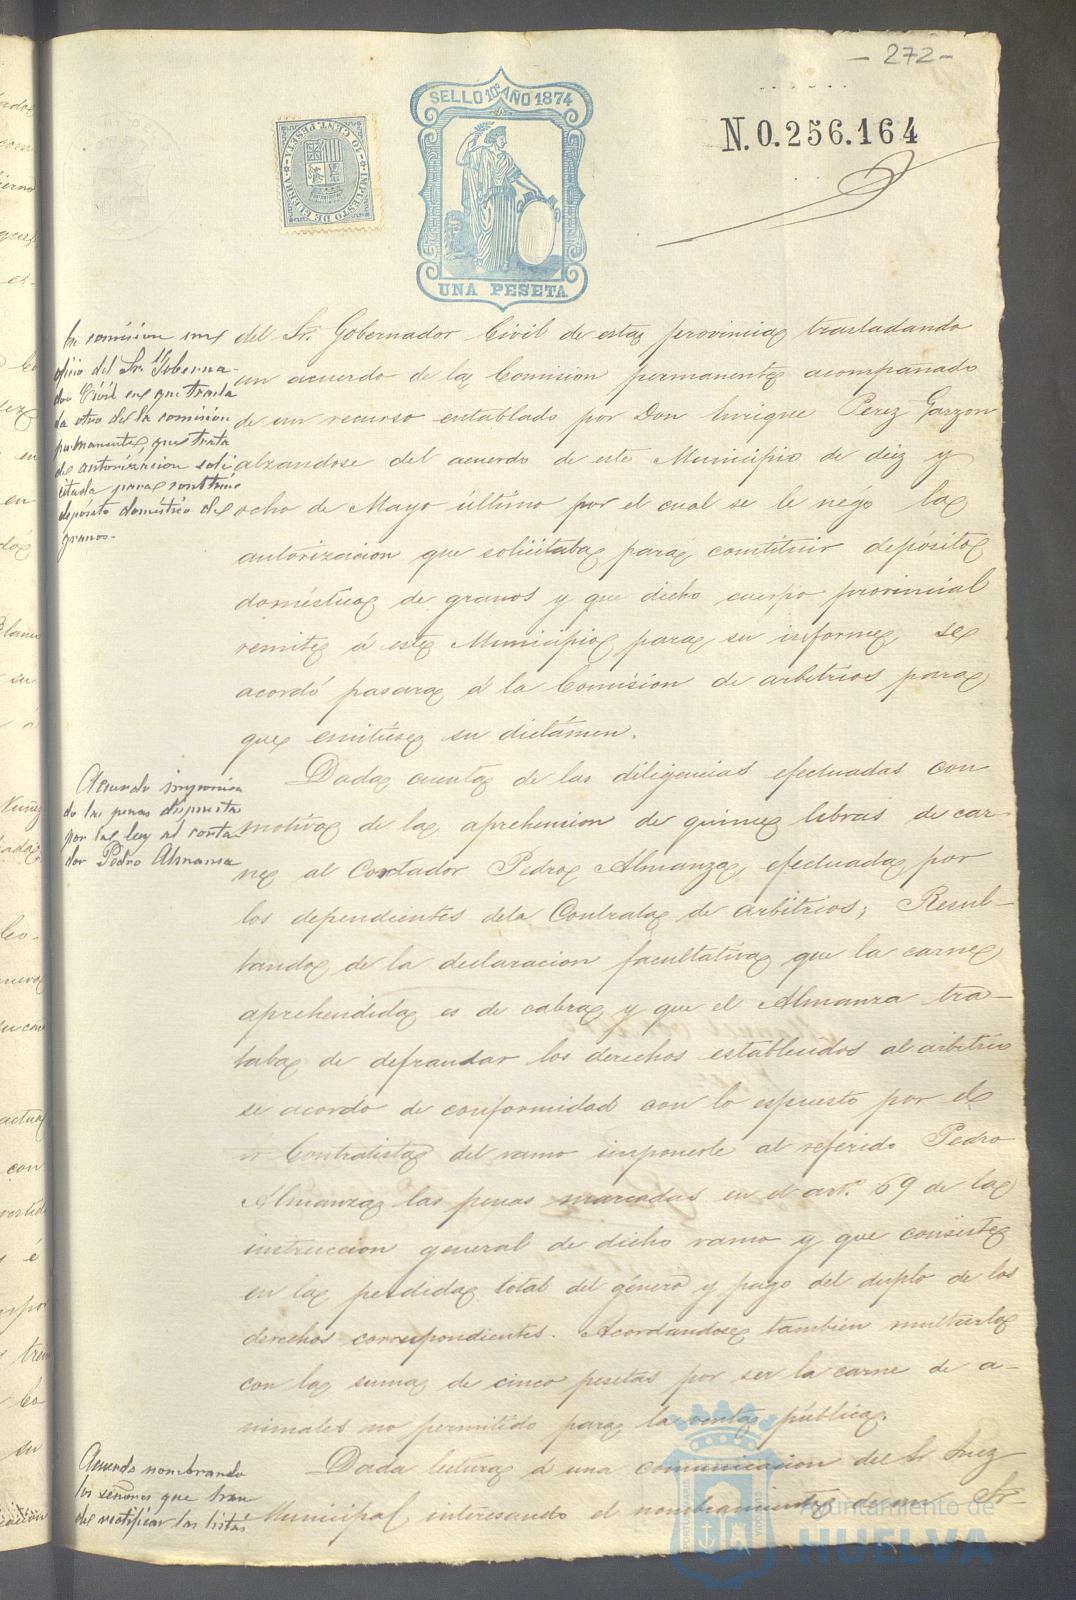 - 272 -
SELLO 10º AÑO 1874
UNA PESETA
IMPUESTO DE GUERRA
10 CENT. PESETA
N. 0.256.164
oficio del Sr. Goberna-
dor Civil en que trasla
da otro de la comision
permanente, que trata
de autorizacion soli
citada para constituir
depósito doméstico de
granos.-
del Sr. Gobernador Civil de esta provincia trasladando
un acuerdo de la Comision permanente acompañado
de un recurso entablado por Don Enrique Perez Garzon
alzandose del acuerdo de este Municipio de diez y
ocho de Mayo último por el cual se le negó la
autorizacion que solicitaba para constituir depósito
doméstico de granos y que dicho cuerpo provincial
remite á este Municipio para su informe, se
acordó pasara á la Comision de arbitrios para
que emitiese su dictámen.
Acuerdo imponien
do las penas dispuesta
por la ley al corta
dor Pedro Almansa
Dada cuenta de las diligencias efectuadas con
motivo de la aprehension de quince libras de car-
ne al Cortador Pedro Almanza, efectuada por
los dependientes dela Contrata de arbitrios; Resul-
tando de la declaracion facultativa que la carne
aprehendida es de cabra y que el Almanza tra-
taba de defraudar los derechos establecidos al arbitrio
se acordó de conformidad con lo espuesto por el
Contratista del ramo imponerle al referido Pedro
Almanza las penas marcadas en el art. 69 de la
instruccion general de dicho ramo y que consiste
en la perdida total del género y pago del duplo de los
derechos correspondientes. Acordandose tambien multarlo
con la suma de cinco pesetas por ser la carne de a-
nimales no permitido para la venta pública.
Acuerdo nombrando
los señores que han
de rectificar las listas
Dada lectura á una comunicacion del Sr. Juez
Municipal, interesando el nombramiento de
Ayuntamiento de
HUELVA